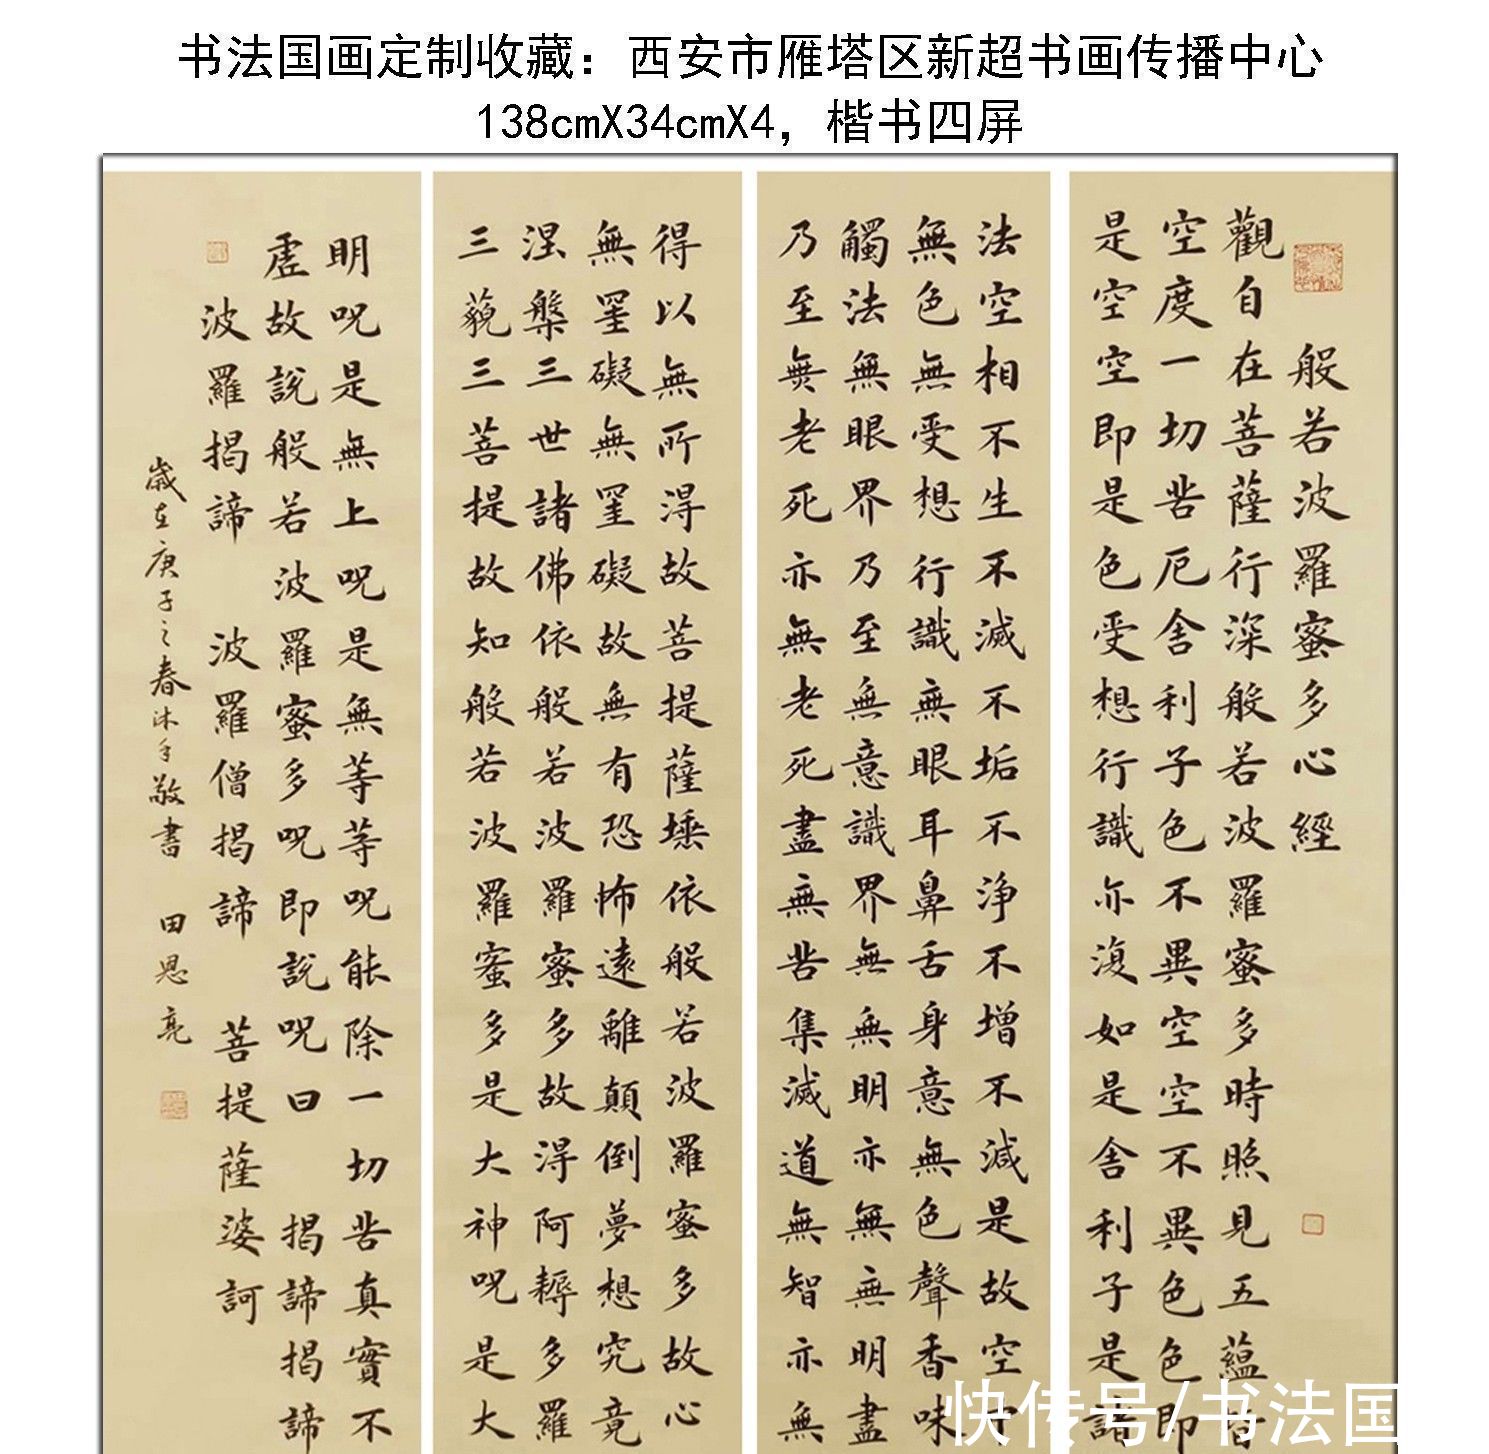 书法国画定制收藏：西安市雁塔区新超书画传播中心
138cmX34cmX4，楷书四屏
般若波羅蜜多心經
觀自在菩薩行深般若波羅蜜多時照見五蘊皆
空度一切苦厄舍利子色不異空空不異色色即
是空空即是色受想行識亦復如是舍利子是諸
法空相不生不滅不垢不淨不增不減是故空
無色無受想行識無眼耳鼻舌身意無色聲香味
觸法無眼界乃至無意識界無無明亦無無明盡
乃至無老死亦無老死盡無苦集滅道無智亦無
得以無所得故菩提薩埵依般若波羅蜜多故心
無罣礙無罣礙故無有恐怖遠離顛倒夢想究竟
涅槃三世諸佛依般若波羅蜜多故得阿耨多羅
三藐三菩提故知般若波羅蜜多是大神呪是大
明呪是無上呪是無等等呪能除一切苦真實不
虛故說般若波羅蜜多呪即說呪曰 揭諦揭諦
波羅揭諦 波羅僧揭諦 菩提薩婆訶
歲在庚子之春沐手敬書 田恩亮
快传号/书法国